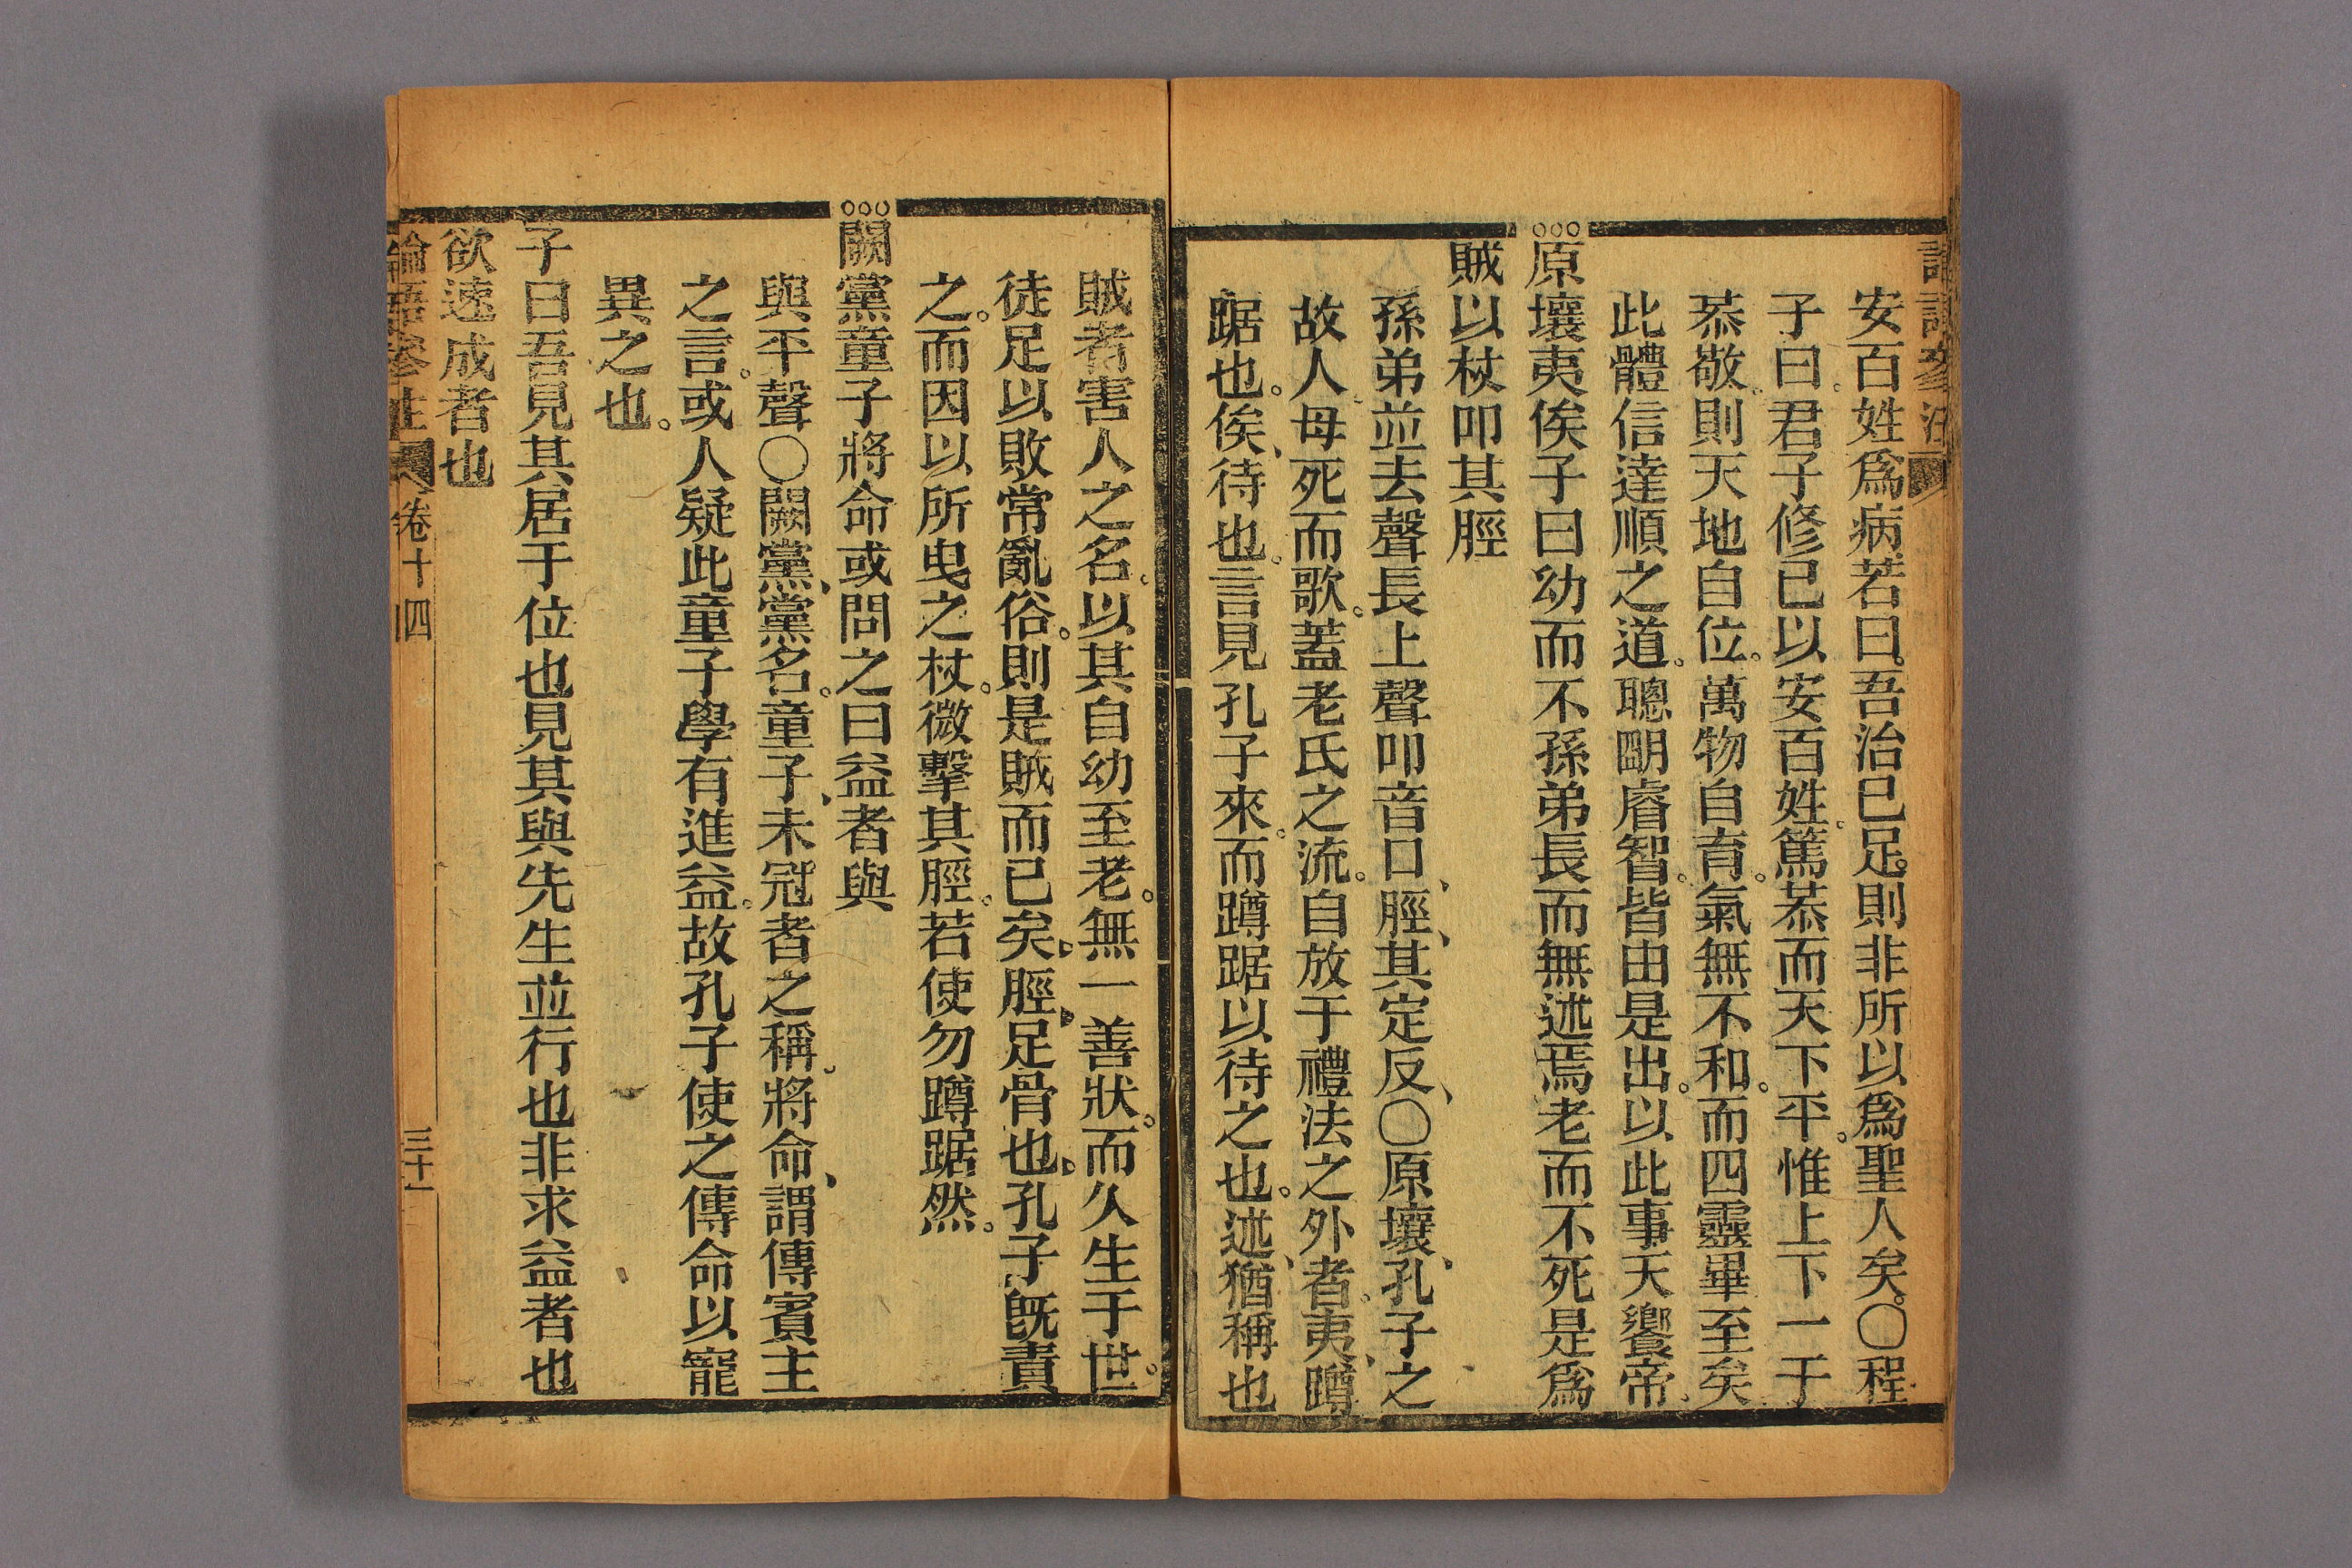 安百姓爲病若曰。吾治已足。則非所以爲聖人矣。〇程
子曰。君子修己以安百姓。篤恭而天下平。惟上下一于
恭敬。則天地自位。萬物自育。氣無不和。而四靈畢至矣
此體信達順之道。聰明睿智。皆由是出。以此事天饗帝。
原壤夷俟子曰幼而不孫弟長而無述焉老而不死是爲
賊以杖叩其脛
孫弟並去聲長上聲叩音口、脛、其定反、〇原壤、孔子之
故人母死而歌。蓋老氏之流。自放于禮法之外者。夷、蹲
踞也。俟、待也。言見孔子來。而蹲踞以待之也。述、猶稱也
賊者害人之名。以其自幼至老。無一善狀。而久生于世。
徒足以敗常亂俗。則是賊而已矣、脛、足骨也、孔子既責
之。而因以所曳之杖。微擊其脛。若使勿蹲踞然。
闕黨童子將命或問之曰益者與
與平聲〇闕黨、黨名。童子、未冠者之稱。將命、謂傳賓主
之言。或人疑此童子學有進益。故孔子使之傳命以寵
異之也。
子曰吾見其居于位也見其與先生並行也非求益者也
欲速成者也
論語參注 卷十四 三十一